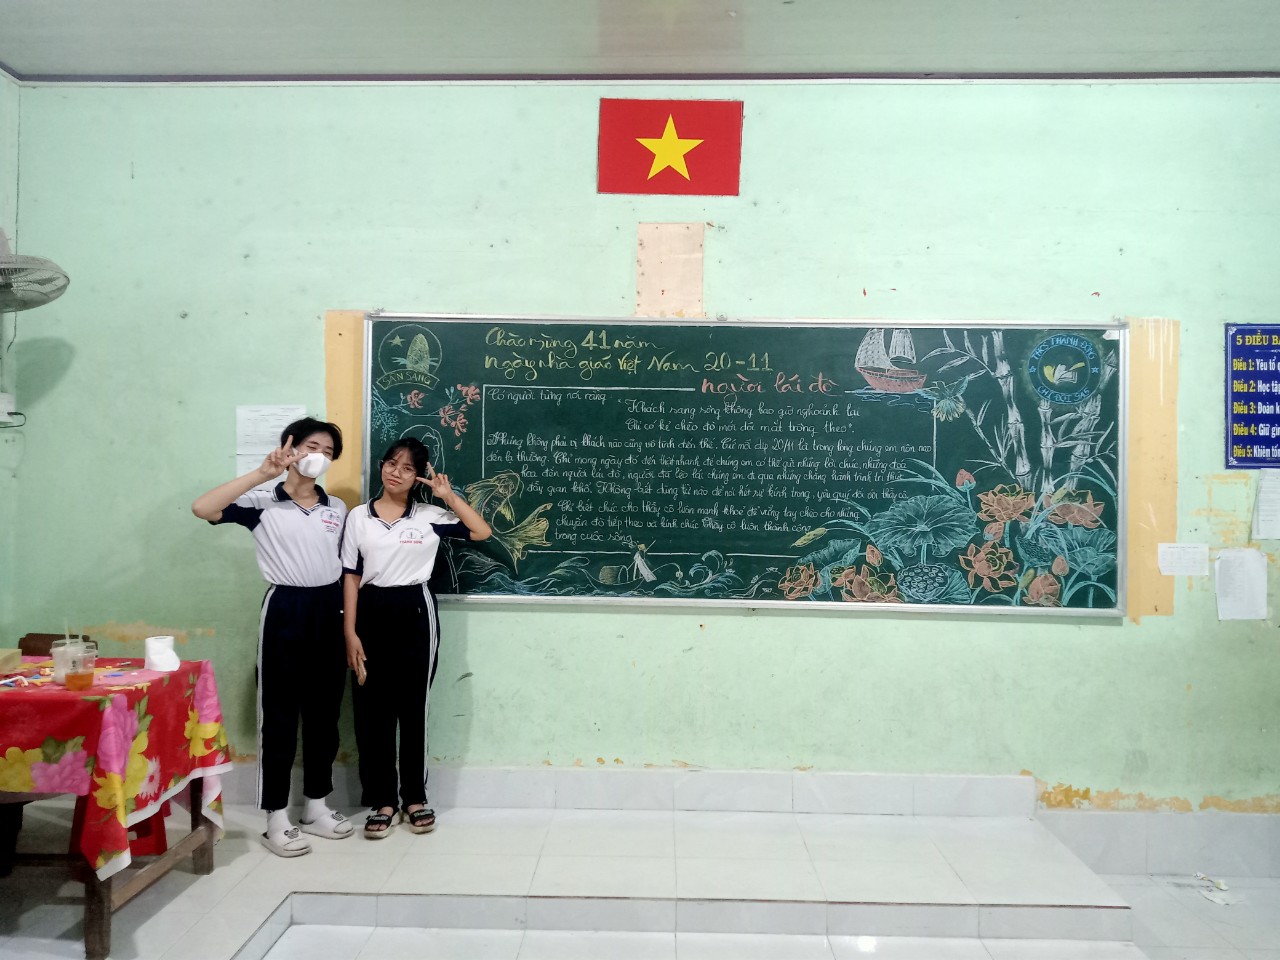 Chào mừng 41 năm
ngày nhà giáo Việt Nam 20-11
người lái đò
SẴN SÀNG
THCS THANH ĐÔNG
Có người từng nói rằng: "
Khách sang sông không bao giờ ngoảnh lại
Chỉ có kẻ chèo đò mới dõi mắt trông theo".
Nhưng không phải vị khách nào cũng vô tình đến thế. Cứ mỗi dịp 20/11 là trong lòng chúng em nôn nao
đến lạ thường. Chỉ mong ngày đó đến thật nhanh để chúng em có thể gửi những lời chúc, những đoá
hoa đến người lái đò, người đã lèo lái chúng em đi qua những chặng hành trình tri thức
đầy gian khổ. Không biết dùng từ nào để nói hết sự kính trọng, yêu quý đối với thầy cô.
Chỉ biết chúc cho thầy cô luôn mạnh khoẻ để vững tay chèo cho những
chuyến đò tiếp theo và kính chúc thầy cô luôn thành công
trong cuộc sống.
5 ĐIỀU BÁ
Điều 1: Yêu tổ q
Điều 2: Học tập
Điều 3: Đoàn k
Điều 4: Giữ gìn
Điều 5: Khiêm tố
THANH ĐÔNG
THANH ĐÔNG